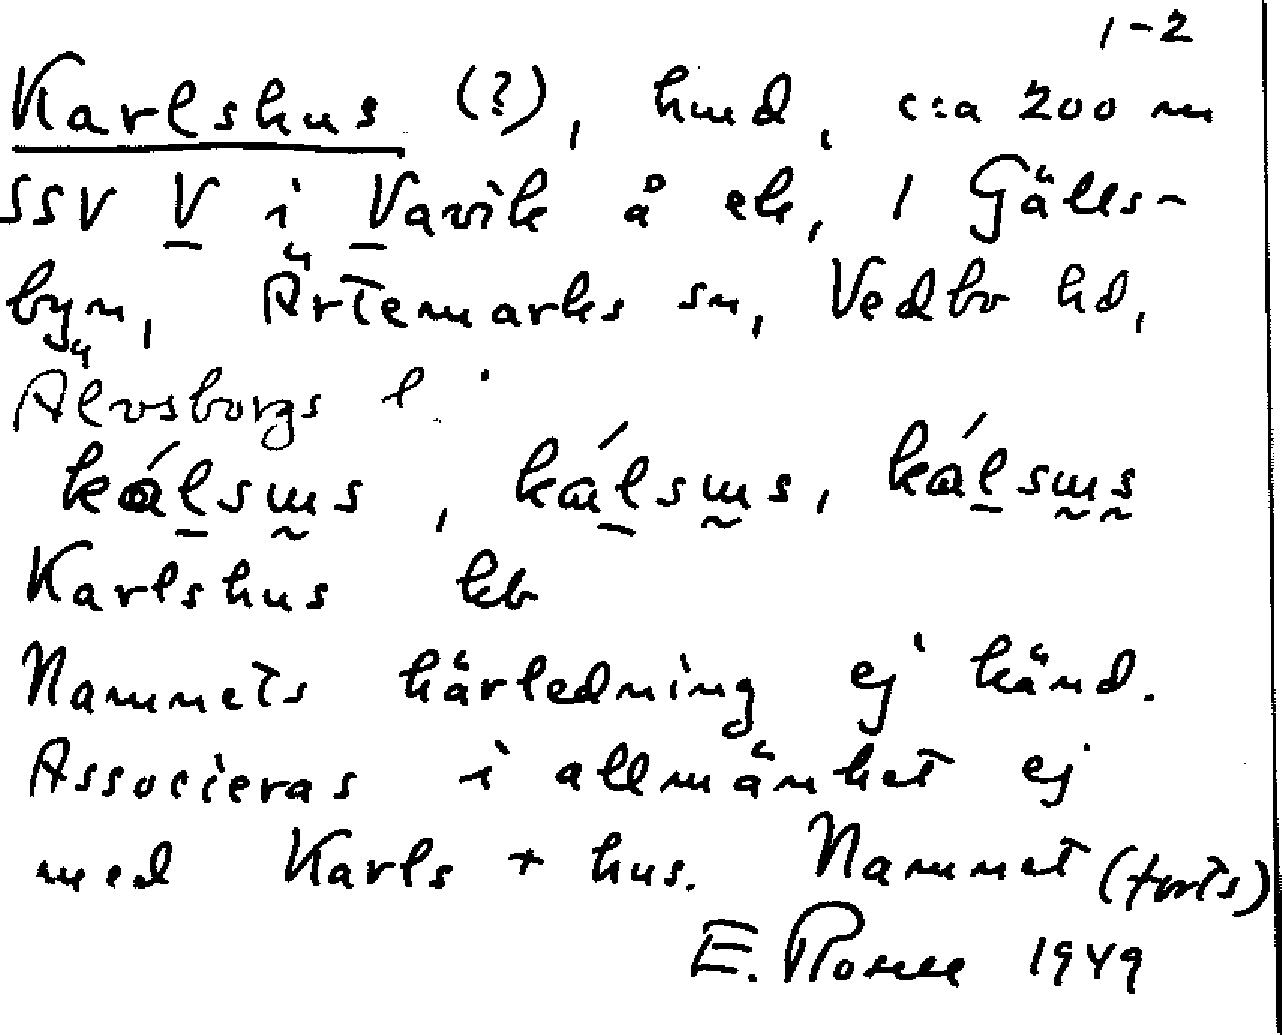 1-2
Karlshus (?), hmd, c:a 200 m
SSV V i Vavik å ek, i Gälls-
byn, Ärtemarks sn, Vedbo hd,
Älvsborgs l.
kálsɯs, kálsɯs, kálsɯs
Karlshus kb
Namnets härledning ej känd.
Associeras i allmänhet ej
med Karls + hus. Namnet (forts)
E. 1949